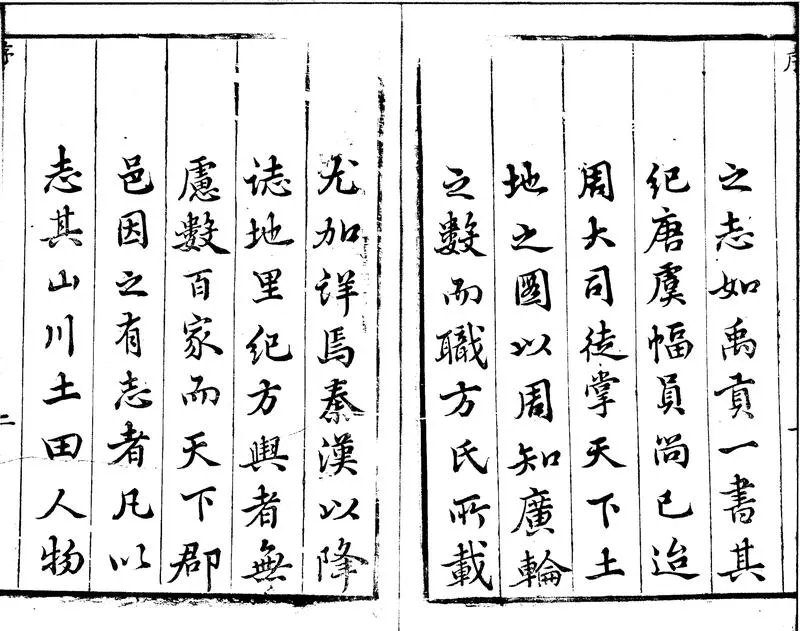 之志如禹貢一書其
紀唐虞幅員尚已迨
周大司徒掌天下土
地之圖以周知廣輪
之數而職方氏所載
尤加詳焉秦漢以降
誌地里紀方輿者無
慮數百家而天下郡
邑因之有志者凡以
志其山川土田人物
序
二